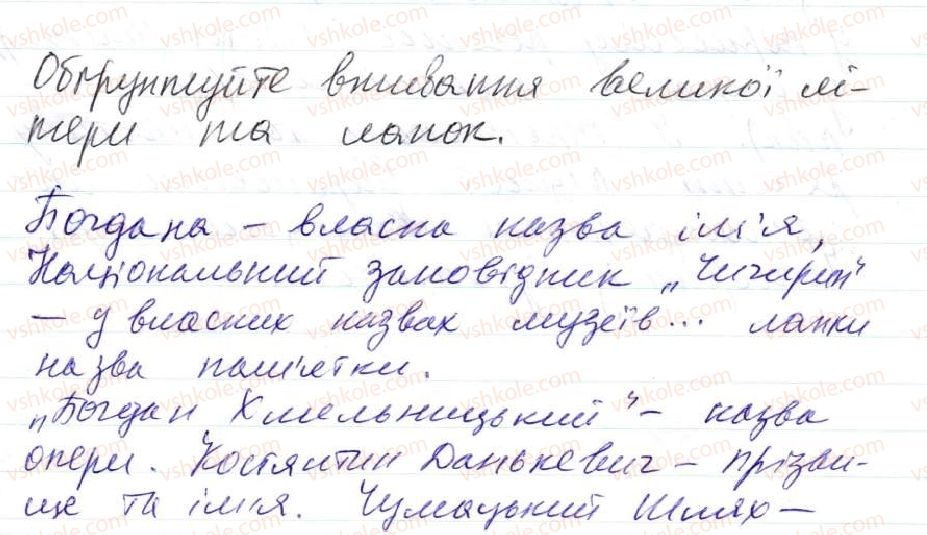 Обґрунтуйте вживання великої лі-
тери та лапок.
Богдана – власна назва ім'я,
Національний заповідник „Чигирин"
– у власних назвах музеїв... лапки
назва пам'ятки.
„Богдан Хмельницький" – назва
опери. Костянтин Данькевич – прізви-
ще та ім'я. Чумацький Шлях –